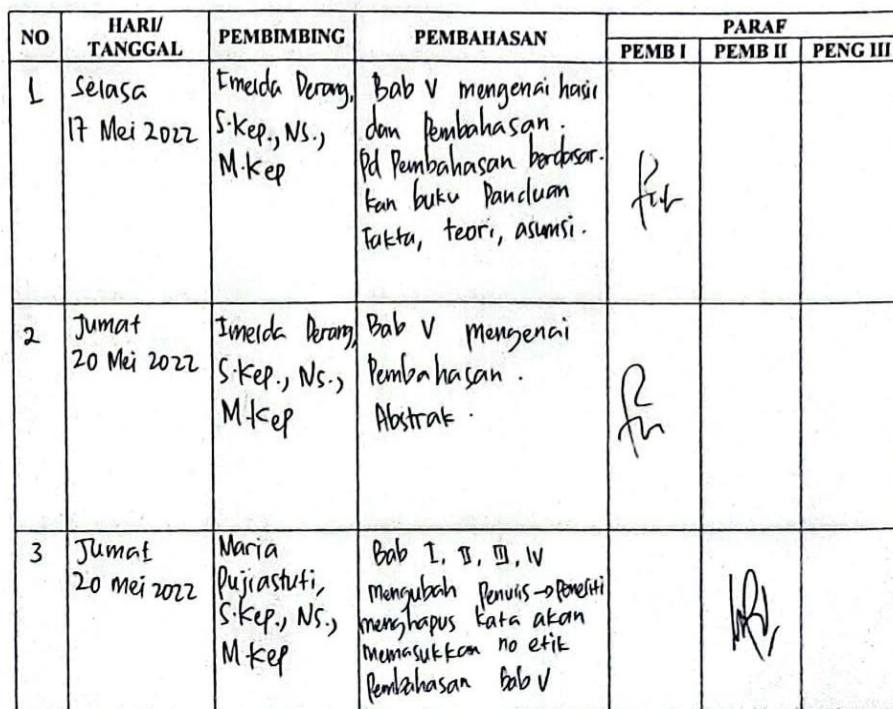 NO HARI/ TANGGAL PEMBIMBING PEMBAHASAN PARAF
PEMB I PEMB II PENG III
1
Selasa
17 Mei 2022
Imelda Derang,
S.Kep., Ns.,
M.Kep
Bab V mengenai hasil
dan Pembahasan.
Pd Pembahasan berdasar-
kan buku Panduan
Fakta, teori, asumsi.
2
Jumat
20 Mei 2022
Imelda Derang,
S.Kep., Ns.,
M.Kep
Bab V mengenai
Pembahasan.
Abstrak.
3
Jumat
20 Mei 2022
Maria
Pujiastuti,
S.Kep., Ns.,
M.Kep
Bab I, II, III, IV
mengubah Penulis → Peneliti
menghapus kata akan
memasukkan no etik
Pembahasan Bab V